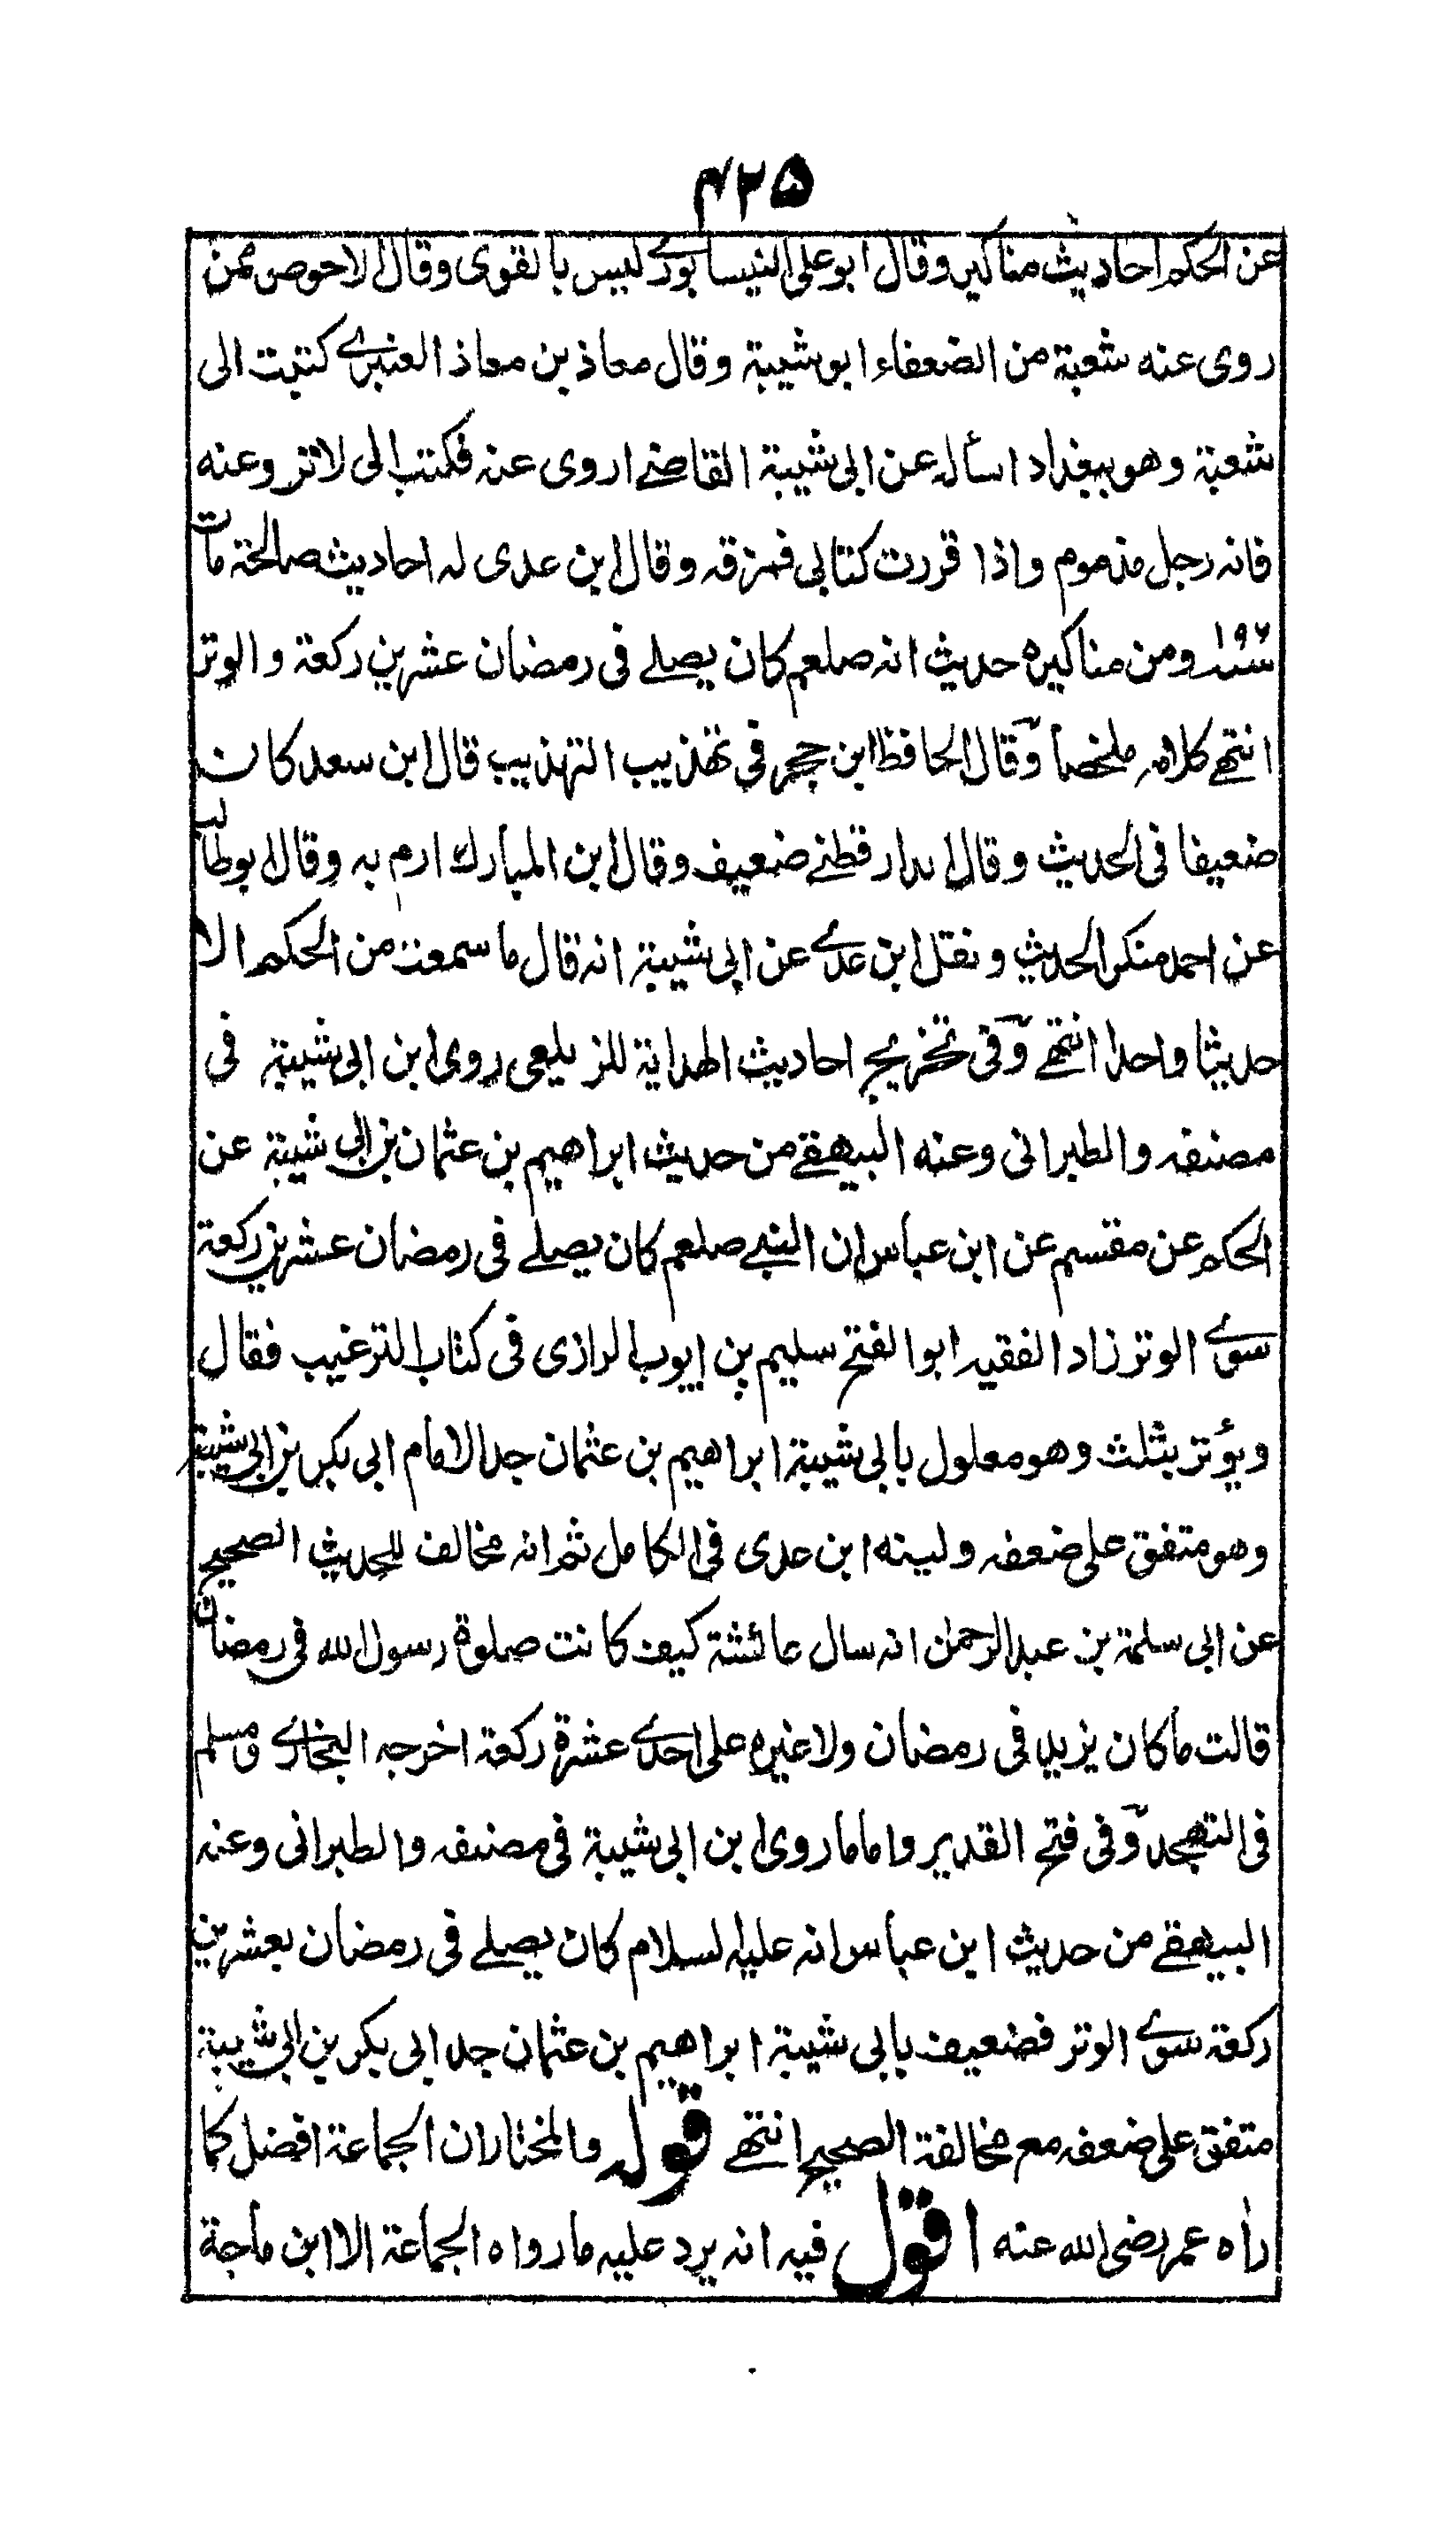 ۴۲۵
عن الحكم احاديث مناكير وقال ابو علی النيسابوری ليس بالقوی وقال الاحوص ممن
روی عنه شعبة من الضعفاء ابو شيبة وقال معاذ بن معاذ العنبری كتبت الی
شعبة وهو ببغداد اسأله عن ابی شيبة القاضی اروی عنه فكتب الی لا تروعنه
فانه رجل مذموم واذا قررت كتابی فمزقه وقال ابن عدی له احاديث صالحة مات
سنه ۱۹۶ ومن مناكيره حديث انه صلعم كان يصلے فی رمضان عشرين ركعة والوتر
انتهے كلامه ملخصا وقال الحافظ ابن حجر فی تهذيب التهذيب قال ابن سعد كان
ضعيفا فی الحديث وقال الدارقطنے ضعيف وقال ابن المبارك ارم به وقال ابو طالب
عن احمد منكر الحديث ونقل ابن عدے عن ابی شيبة انه قال ما سمعت من الحكم الا
حديثا واحدا انتهے وفی تخريج احاديث الهداية للزيلعی روی ابن ابی شيبة فی
مصنفه والطبرانی وعنه البيهقے من حديث ابراهيم بن عثمان بن ابی شيبة عن
الحكم عن مقسم عن ابن عباس ان النبے صلعم كان يصلے فی رمضان عشرين ركعة
سوے الوتر زاد الفقيه ابو الفتح سليم بن ايوب الرازی فی كتاب الترغيب فقال
ويؤتر بثلث وهو معلول بابی شيبة ابراهيم بن عثمان جد الامام ابی بكر بن ابی شيبة
وهو متفق علی ضعفه ولينه ابن عدی فی الكامل ثم انه مخالف للحديث الصحيح
عن ابی سلمة بن عبد الرحمن انه سال عائشة كيف كانت صلوة رسول الله فی رمضان
قالت ما كان يزيد فی رمضان ولا غيره علی احدے عشرة ركعة اخرجه البخاری ومسلم
فی التهجد وفی فتح القدير واما ما روی ابن ابی شيبة فی مصنفه والطبرانی وعنه
البيهقے من حديث ابن عباس انه عليه السلام كان يصلے فی رمضان بعشرين
ركعة سوے الوتر فضعيف بابی شيبة ابراهيم بن عثمان جد ابی بكر بن ابی شيبة
متفق علی ضعفه مع مخالفة الصحيح انتهے قوله والمختار ان الجماعة افضل كما
راه عمر رضی الله عنه اقول فيه انه يرد عليه ما رواه الجماعة الا ابن ماجة